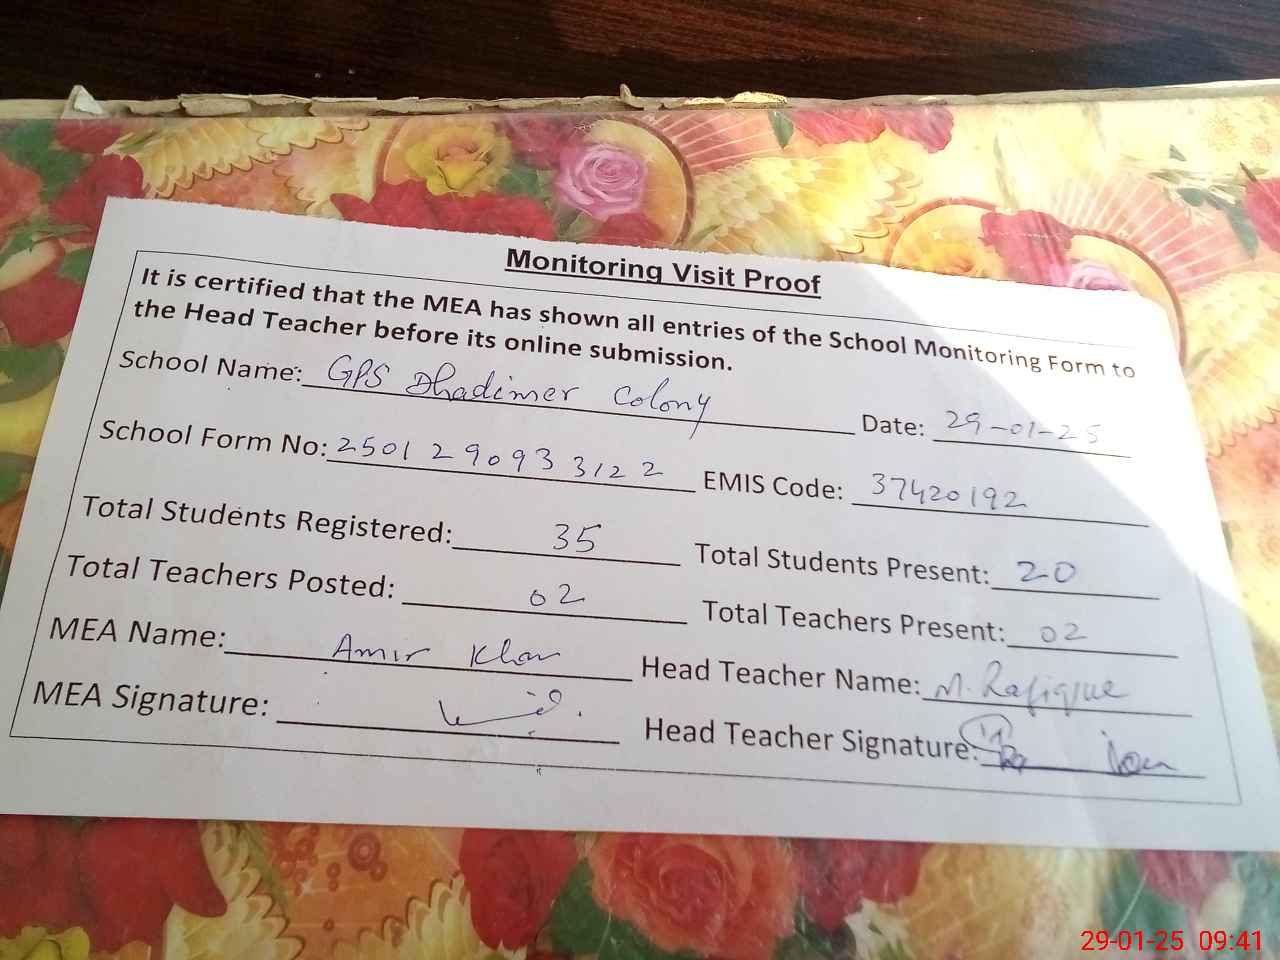 Monitoring Visit Proof
It is certified that the MEA has shown all entries of the School Monitoring Form to
the Head Teacher before its online submission.
School Name: GPS Dhadimer Colony Date: 29-01-25
School Form No: 2501290933122 EMIS Code: 37420192
Total Students Registered: 35 Total Students Present: 20
Total Teachers Posted: 02 Total Teachers Present: 02
MEA Name: Amir Khan Head Teacher Name: M. Rafique
MEA Signature: Head Teacher Signature:
29-01-25 09:41